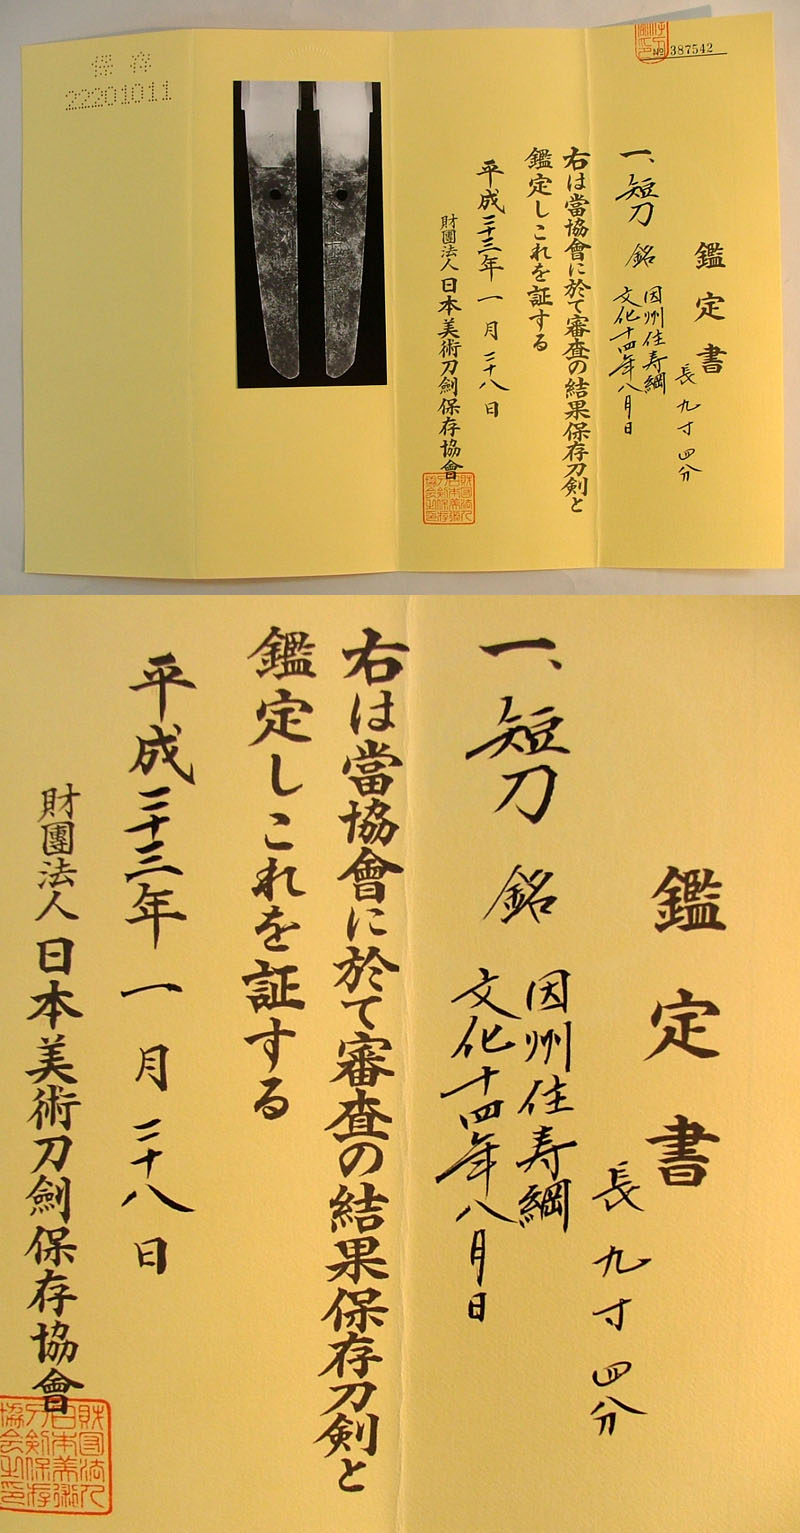 保存
22201011
財団法人日本美術刀剣保存協会之印
№ 387542
鑑定書
長九寸四分
一、短刀 銘 因州住寿綱
文化十四年八月日
右は當協會に於て審査の結果保存刀剣と
鑑定しこれを証する
平成二十三年一月二十八日
財團法人日本美術刀劍保存協會
鑑定書
長九寸四分
一、短刀 銘 因州住寿綱
文化十四年八月日
右は當協會に於て審査の結果保存刀剣と
鑑定しこれを証する
平成二十三年一月二十八日
財團法人日本美術刀劍保存協會
財団法人日本美術刀剣保存協会之印